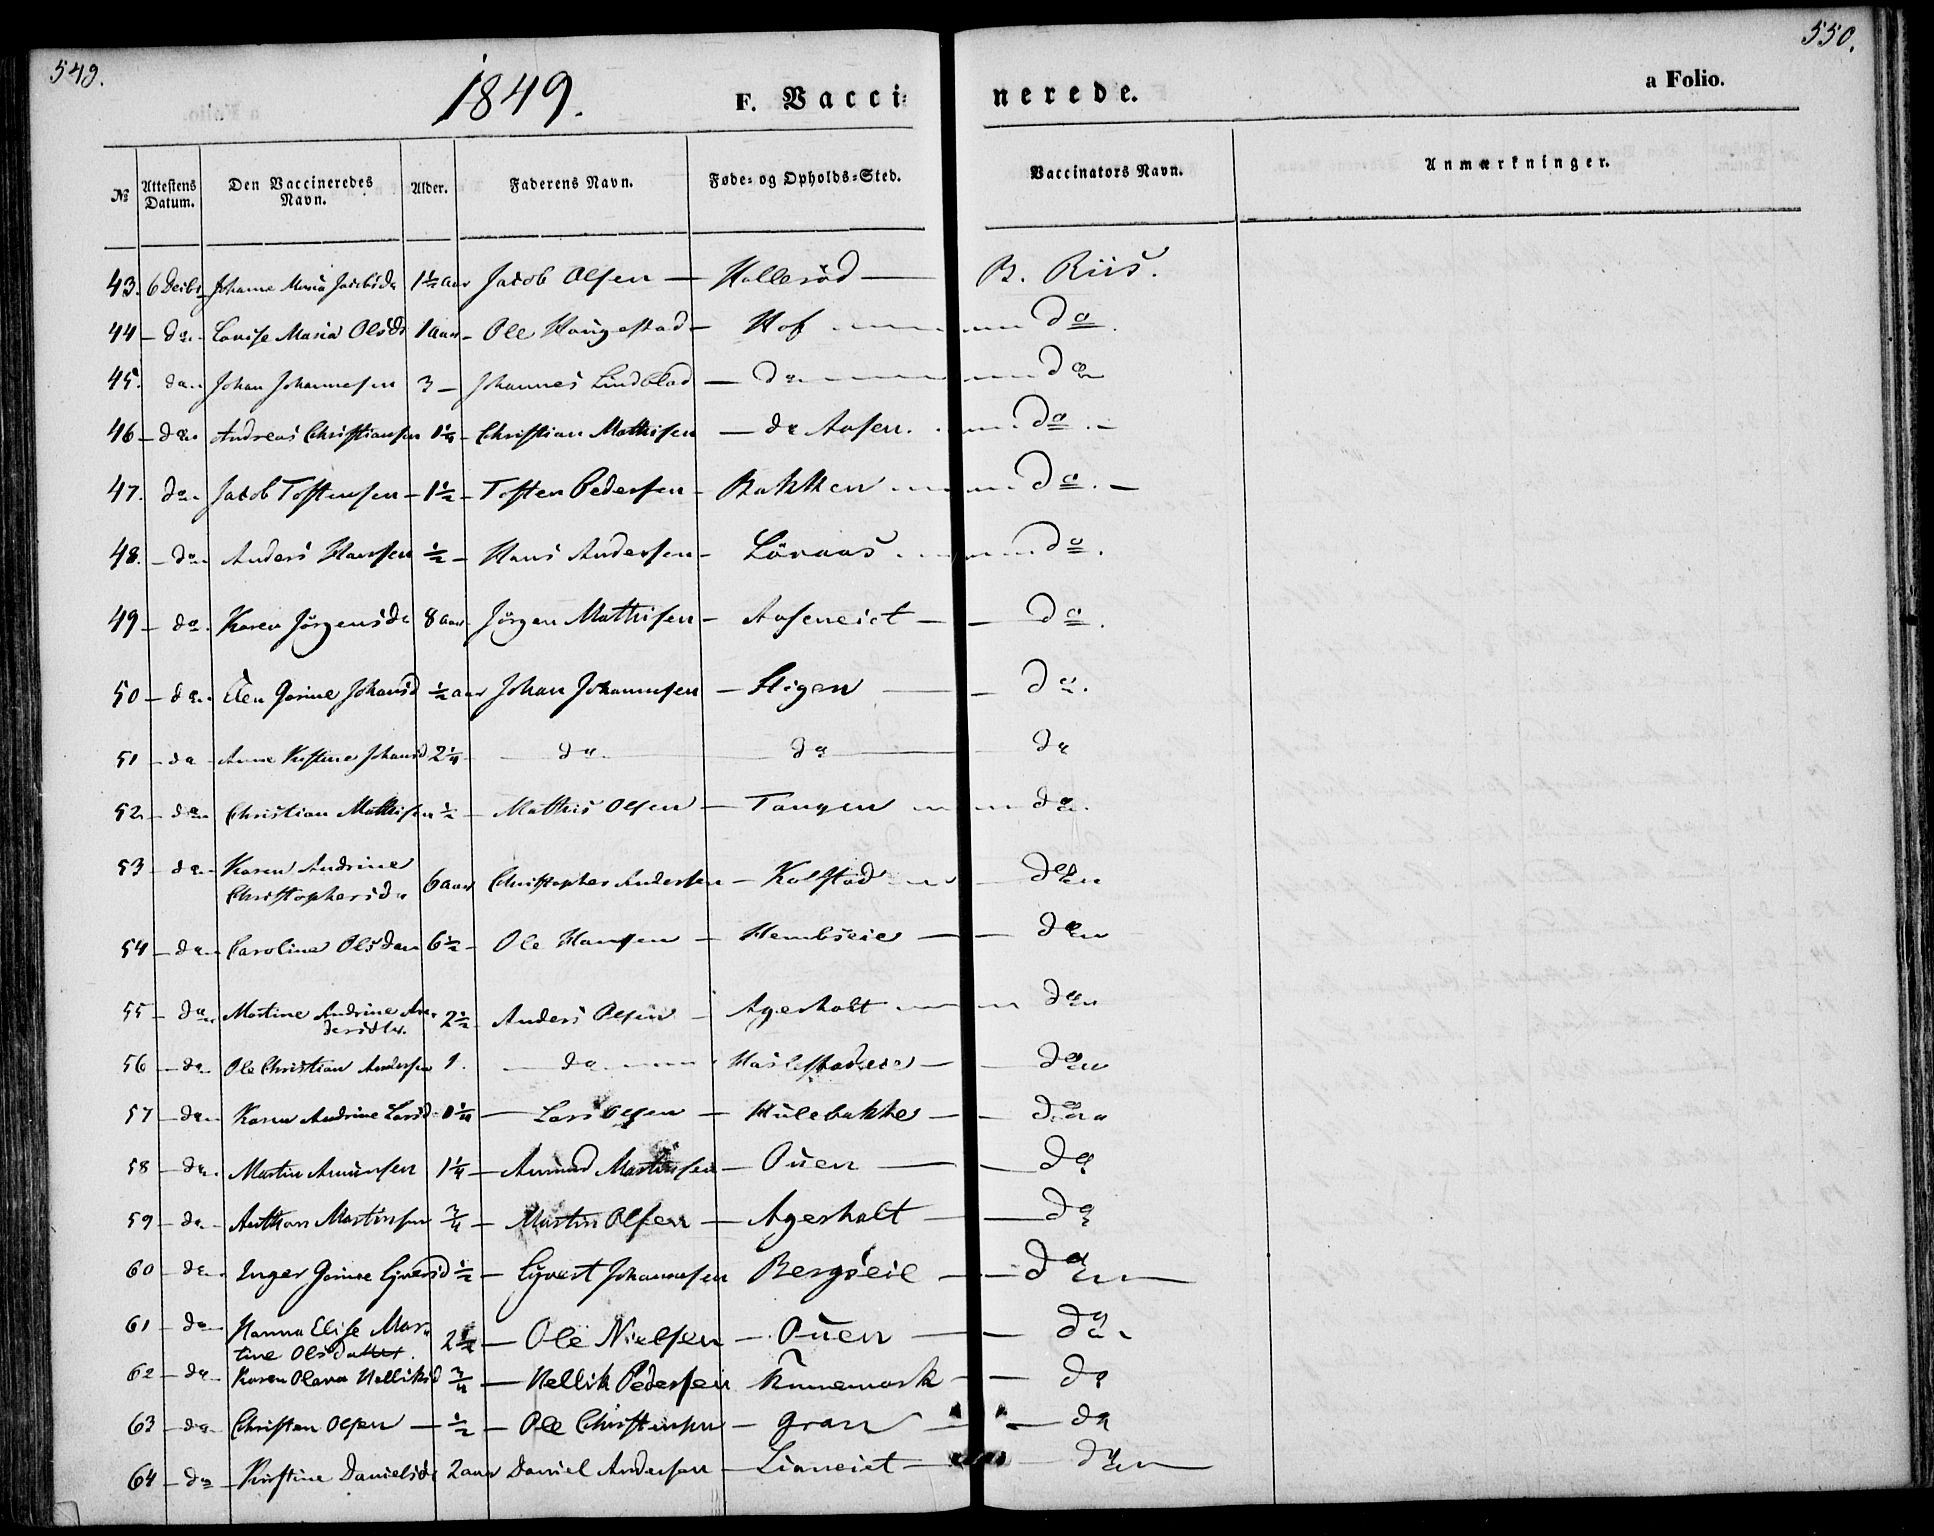 549.
550.
1849.
F. Vacci-nerede.
a Folio.
No Attestens Datum. Den Vaccineredes Navn. Alder. Faderens Navn. Føde- og Opholds-Sted. Vaccinators Navn. Anmærkninger.
43. 6 Johanne Maria 1½ aar Jacob Olsen — Hallesöd — B. Riis.
44 — do. Lovise Maria Olsdr 1 aar — Ole Haugestad — Hof do.
45. do. Johan Johannesen 3 — Johannes Lindblad — do do
46 — do. Andreas Christiansen 1¼ — Christian Mathisen — do Aasen. do. —
47. do. Jacob Tostensen — 1½ — Tosten Pedersen — Bakken do. —
48. — do. Anders Hansen ½ — Hans Andersen — Lövaas do.
49 — do. Karen Jörgensd. 8 aar Jörgen Mathisen — Aaseneiet — — do.
50 — do. Elen Gorine Johansd ½ aar Johan Johannesen — Stigen — — do.
51 — do Anne Kistine Johansd 2¼ — do — do — do
52 — do Christian Mathisen ½ — Mathis Olsen — Tangen do.
53 — do — Karen Andrine
Christophersd. 6 aar Christopher Andersen — Kolstad — do
54 — do — Caroline Olsdau 6½ — Ole Hansen — Hembseie — — do
55 — do Martine Andrine An-
dersdtr. 2½ Anders Olsen — Agerholt do
56 — do — Ole Christian Andersen 1. — do Haslestadeie — — do
57 — do — Karen Andrine Larsd. 1¼ — Lars Olsen — Hulebakke — — do
58 — do. Martin Amunsen 1¼ — Amund Martinsen — Ouen — — do
59 — do — Anthon Martinsen ¾ — Martin Olsen — Agerholt — — do
60 — do — Inger Gorine Ejversd ½ — Ejvert Johannesen Bergseie — — do
61 — do — Hanna Elise Mar-
tine Olsdatter. 2½ — Ole Nielsen — Ouen — — do
62 — do — Karen Olava Helliksd ¾ — Hellik Pedersen Kunemark — — do
63 — do — Christen Olsen — ½ — Ole Christensen — Gran — — do
64 — do — Kirstine Danielsd. 2 aar Daniel Andersen — Lianeiet — do